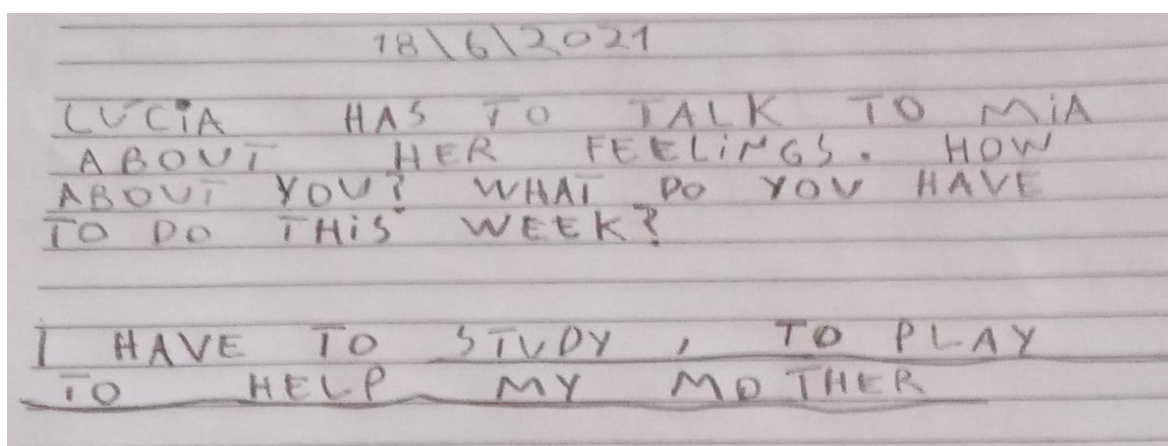 18\6\2021
LUCiA HAS TO TALK TO MiA
ABOUT HER FEELiNGS. HOW
ABOUT YOU? WHAT DO YOU HAVE
TO DO THiS WEEK?
I HAVE TO STUDY, TO PLAY
TO HELP MY MOTHER